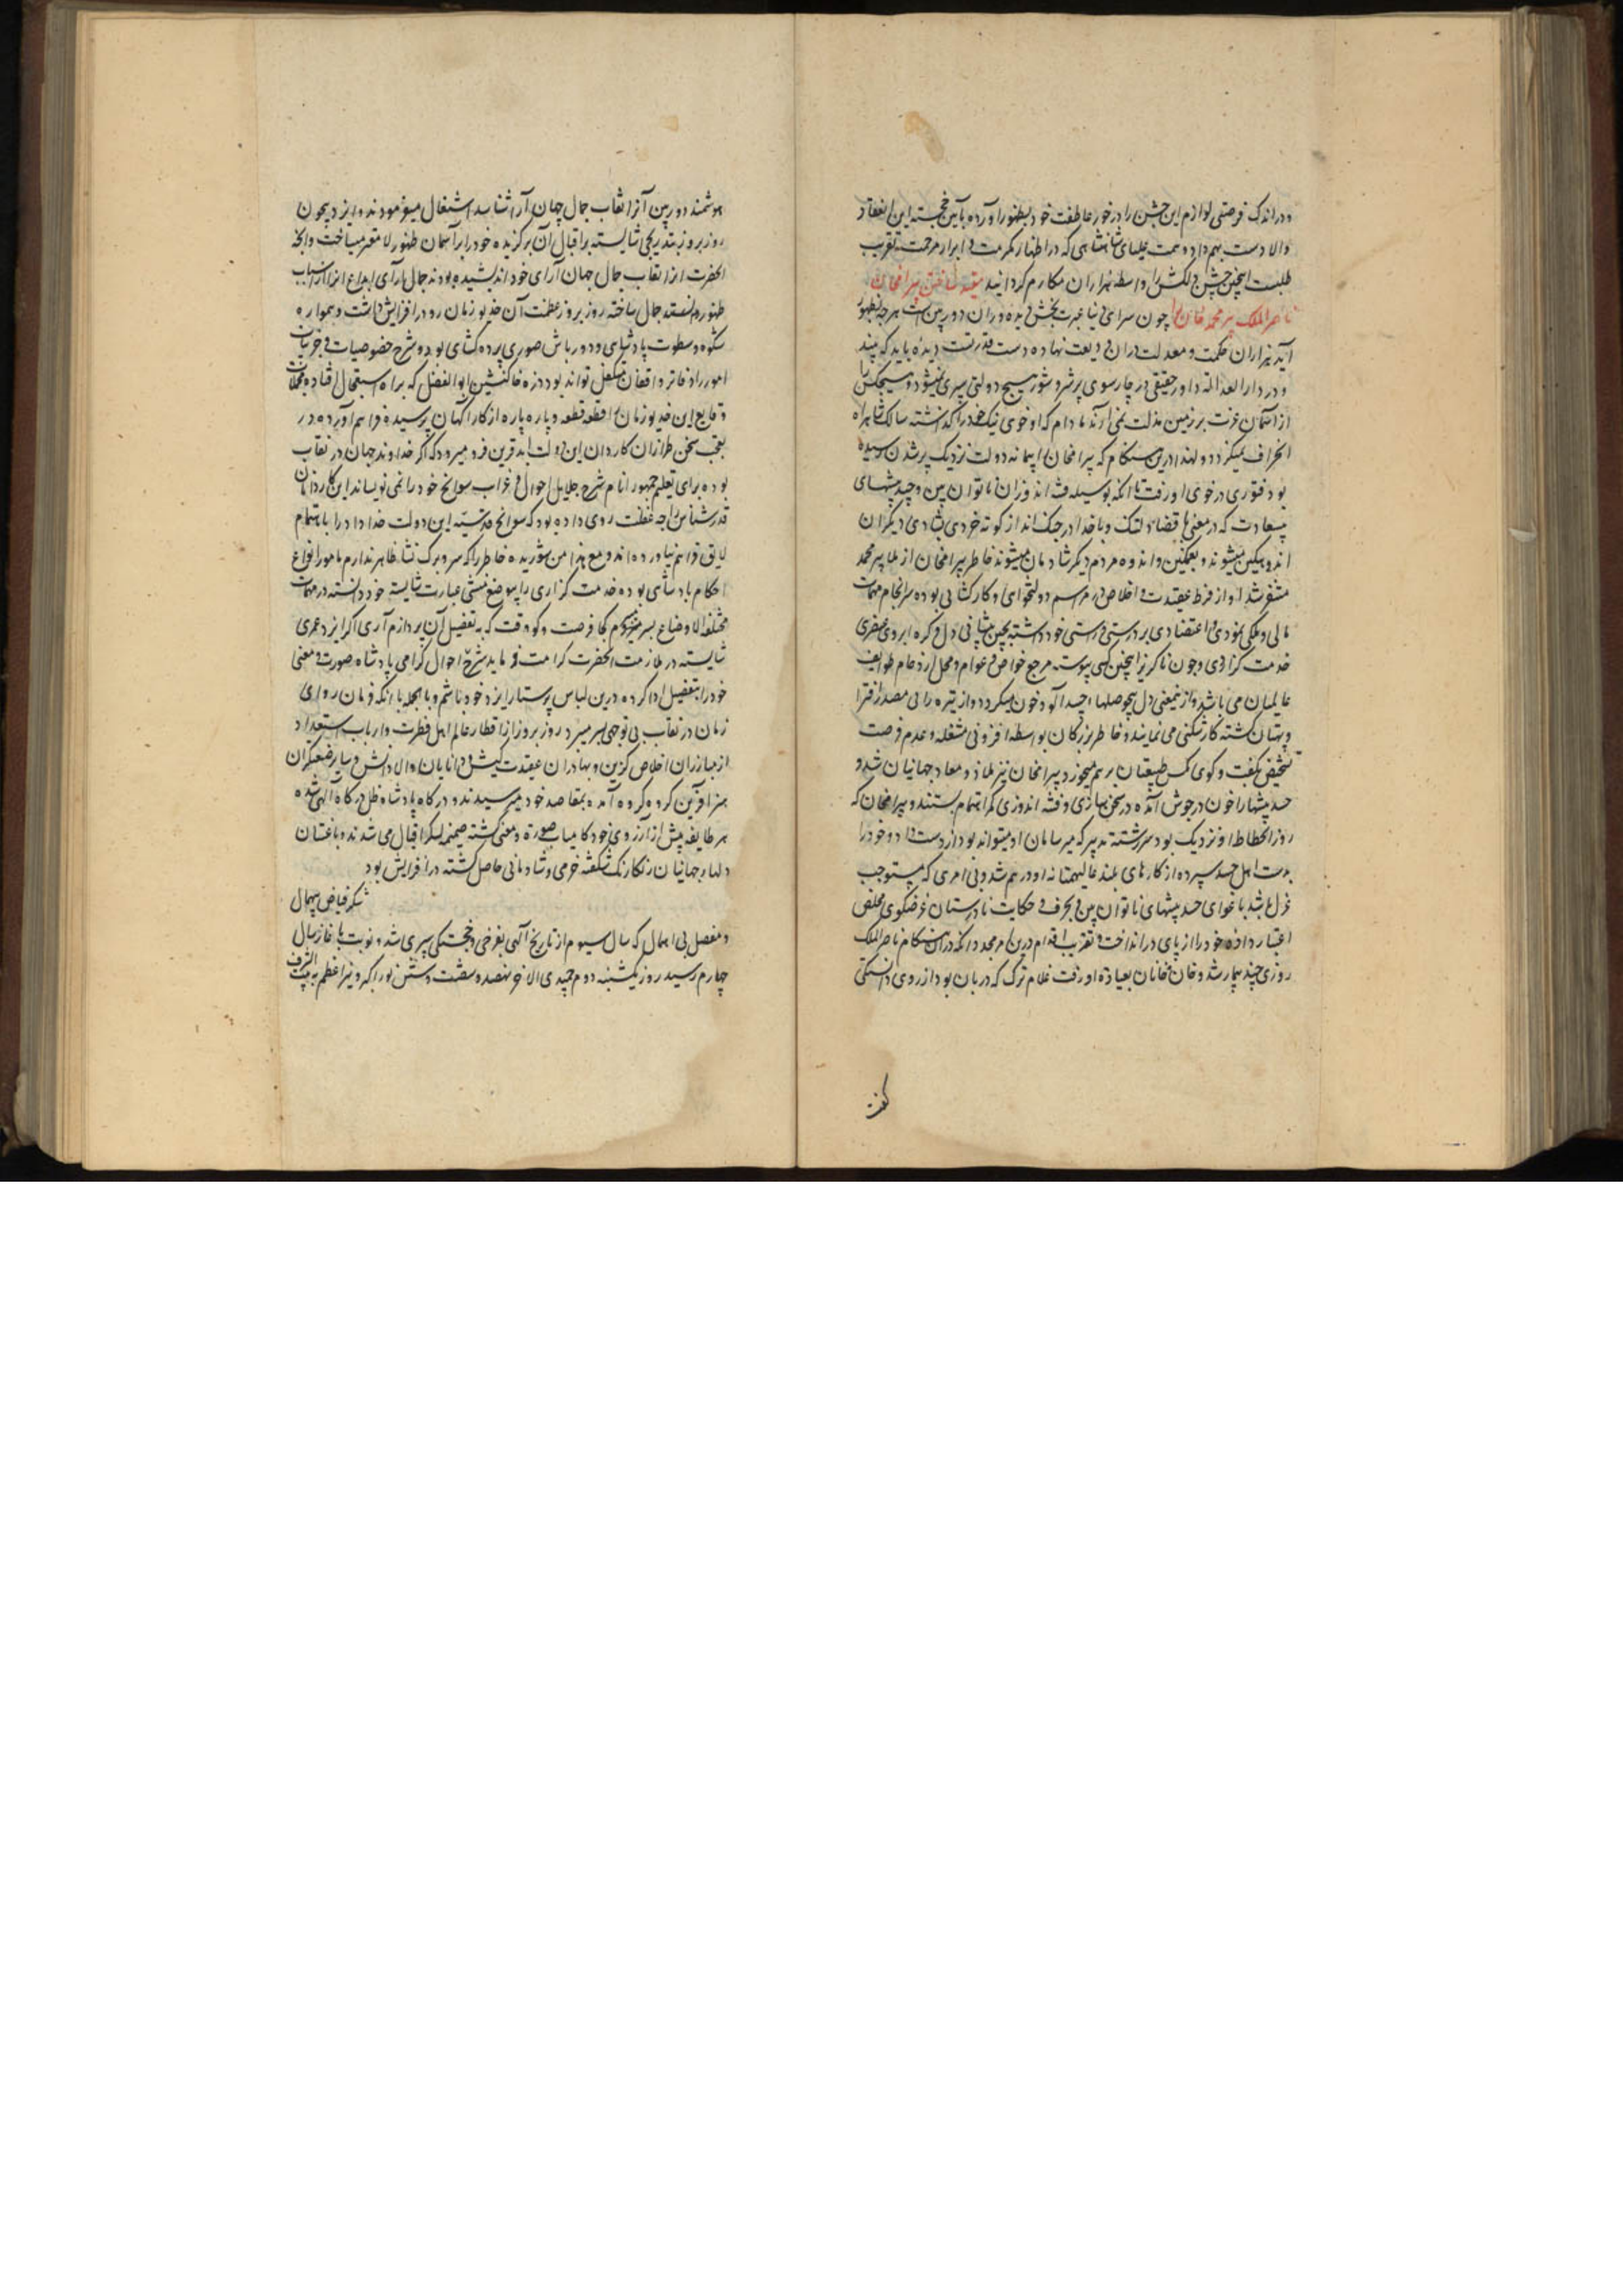 ودر اندک فرصتی لوازم این جشن را در خور عاطفت خود بظهور آورده بآیین خجسته این انعقاد
والا دست بهم داد و همت علیای شاهنشاهی که در اظهار مکرمت و ابراز مرحمت تقریب
طلبست اینچنین جشن دلکش را واسطه هزاران مکارم گردانید مقید ساختن بیرامخان
ناصر الملک پیر محمد خان را چون سرای دنیا عبرت بخش دیده وران دوربین است هرچه بظهور
آید هزاران حکمت و معدلت در آن ودیعت نهاده دست قدرتست دیده باید که بیند
و در دار العدالة داور حقیقی در چارسوی پر شر و شور هیچ دولتی سپری نمیشود و هیچکس را
از آسمان عزت بر زمین مذلت نمی آرند مادام که او خوی نیک خود را گذاشته سالک شاهراه
انحراف نمیگردد ولهذا درین هنگام که بیرامخان را پیمانه دولت نزدیک پر شدن رسیده
بود فتوری در خوی او رفت تا آنکه بوسیله فتنه اندوزان ناتوان بین و حسد پیشهای
بیسعادت که در معنی با قضا دلتنگ و با خدا در جنگ اند از کوته خردی بشادی دیگران
اندوهگین میشوند و بغمگینی و اندوه مردم دیگر شادمان میشوند خاطر بیرامخان از ملا پیر محمد
متنفر شد او از فرط عقیدت و اخلاص در مراسم دولتخواهی و کارگشایی بوده سرانجام مهمات
مالی و ملکی نمودی و اعتضادی بر درستی و راستی خود داشته بچین پیشانی دل و گره ابروی عنصری
خدمت گزاردی و چون ناگزیر اینچنین کسی پیوسته مرجع خواص و عوام و محل ازدحام طوایف
عالمیان می باشد و از نیمعنی دل بیحوصلها و حسد آلود خون میگردد و از تیره رایی مصدر افترا
و بهتان گشته کارشکنی می نمایند و خاطر بزرگان بواسطه افزونی مشغله و عدم فرصت
تشخیص بگفت و گوی کس طبیعتان برهم میخورد بیرامخان نیز ملاذ و معاد جهانیان شد و
حسد پیشها را خون در جوش آمده در سخن سازی و فتنه اندوزی کمر اهتمام بستند و بیرامخان که
روز انحطاط او نزدیک بود سررشته تدبیر که میر سامان او میتواند بود از دست داد و خود را
بدست اهل حسد سپرده از کارهای بلند عالیهمتانه او درهم شد و بی امری که مستوجب
عزل باشد باغوای حسد پیشهای ناتوان بین و بحرف و حکایت نادرستان غرضگوی مخلص
اعتبار داده خود را از پای در انداخت و تقریب اقدام درین امر مجدد آنکه در آن هنگام ناصر الملک
روزی چند بیمار شد و خان خانان بعیادة او رفت غلام ترک که دربان بود از روی دانستگی
گفت
هوشمند دوربین آنرا نقاب جمال جهان آرا شناسد اشتغال میفرمودند و ایزد بیچون
روز بروز بتدریجی شایسته بر اقبال آن برگزیده خود را بر آسمان ظهور لامع میساخت و آنچه
آنحضرت آنرا نقاب جمال جهان آرای خود اندیشیده بودند جمال آرای ابداع آنرا از اسباب
ظهور و منصه جمال ساخته روز بروز عظمت آن خدیو زمان رو در افزایش داشت و همواره
شکوه و سطوت پادشاهی و دورباش صوری پرده گشای بود و شرح خصوصیات و جزئیات
امور را دفاتر واقعات متکفل تواند بود ذره خاک نشین ابوالفضل که براه استعجال افتاده مجملات
وقایع این خدیو زمان را قطعه قطعه و پاره پاره از کارآگهان پرسیده فراهم آورده در
تعجب سخن طرازان کاردان این دولت ابد قرین فرو میرود که اگر خداوند جهان در نقاب
بوده برای تعلیم جمهور انام شرح جلایل احوال و غرایب سوانح خود را نمی نویساند این کاردانان
قدرشناس را چه غفلت روی داده بود که سوانح قدسیه این دولت خداداد را باهتمام
لایق فراهم نیاورده اند و مع هذا من شوریده خاطر را که سر و برگ نشاء ظاهر ندارم مامور انواع
احکام پادشاهی بوده خدمت گزاری را بموضع منشی عبارت شایسته خود دانسته در مهمات
مختلف الاوضاع بسر میبرم کجا فرصت و کو وقت که به تفصیل آن پردازم آری اگر ایزد عمری
شایسته در ملازمت آنحضرت کرامت فرماید شرح احوال گرامی پادشاه صورت و معنی
خود را بتفصیل ادا کرده درین لباس پرستار ایزد خود باشم و بالجمله با آنکه فرمان روای
زمان در نقاب بی توجهی بسر میبرد روز بروز از اقطار عالم اهل فطرت و ارباب استعداد
از مبارزان اخلاص گزین و بهادران عقیدت کیش و دانایان والا دانش و سایر صنعتگران
هنر آفرین گروه گروه آمده بمقاصد خود میرسیدند و درگاه پادشاه ظل درگاه الهی شده
هر طایفه پیش از آرزوی خود کامیاب صورة و معنی گشته ضمیمه لشکر اقبال می شدند و باغستان
دلهاء جهانیان رنگارنگ شگفته خرمی و شادمانی حاصل گشته در افزایش بود
شکر فیاض بیهمال
و مفضل بی اهمال که سال سیوم از تاریخ الهی بفرخی و خجستگی سپری شد و نوبت بآغاز سال
چهارم رسید روز یکشنبه دوم جمیدی الاخر نهصد و شصت و شش نور اکبر و نیر اعظم به بیت الشرف